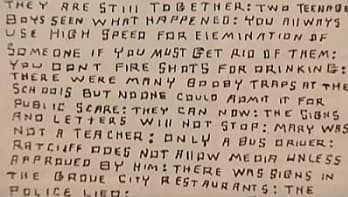 THEY ARE STILL TOGETHER: TWO TEENAGE
BOYS SEEN WHAT HAPPENED: YOU ALWAYS
USE HIGH SPEED FOR ELEMINATION OF
SOMEONE IF YOU MUST GET RID OF THEM:
YOU DONT FIRE SHOTS FOR DRINKING:
THERE WERE MANY BOOBY TRAPS AT THE
SCHOOLS BUT NOONE COULD ADMIT IT FOR
PUBLIC SCARE: THEY CAN NOW: THE SIGNS
AND LETTERS WILL NOT STOP: MARY WAS
NOT A TEACHER: ONLY A BUS DRIVER:
RATCLIFF DOES NOT ALLOW MEDIA UNLESS
APPROVED BY HIM: THERE WAS SIGNS IN
THE GROVE CITY RESTAURANTS: THE
POLICE LIED: